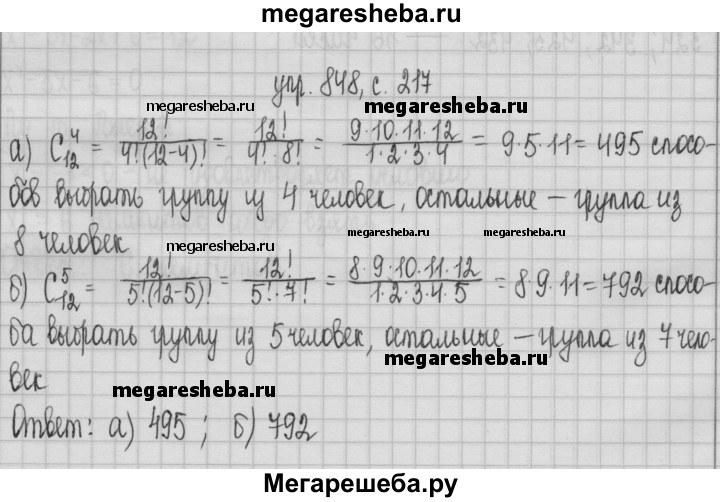 megaresheba.ru
упр. 848, с. 217
megaresheba.ru megaresheba.ru
а) C₁₂⁴ = 12! / 4!(12-4)! = 12! / 4!·8! = 9·10·11·12 / 1·2·3·4 = 9·5·11 = 495 спосо-
бов выбрать группу из 4 человек, остальные – группа из
8 человек
megaresheba.ru megaresheba.ru megaresheba.ru
б) C₁₂⁵ = 12! / 5!(12-5)! = 12! / 5!·7! = 8·9·10·11·12 / 1·2·3·4·5 = 8·9·11 = 792 спосо-
ба выбрать группу из 5 человек, остальные – группа из 7 чело-
megaresheba.ru
век
megaresheba.ru
Ответ: а) 495 ; б) 792
Мегарешеба.ру